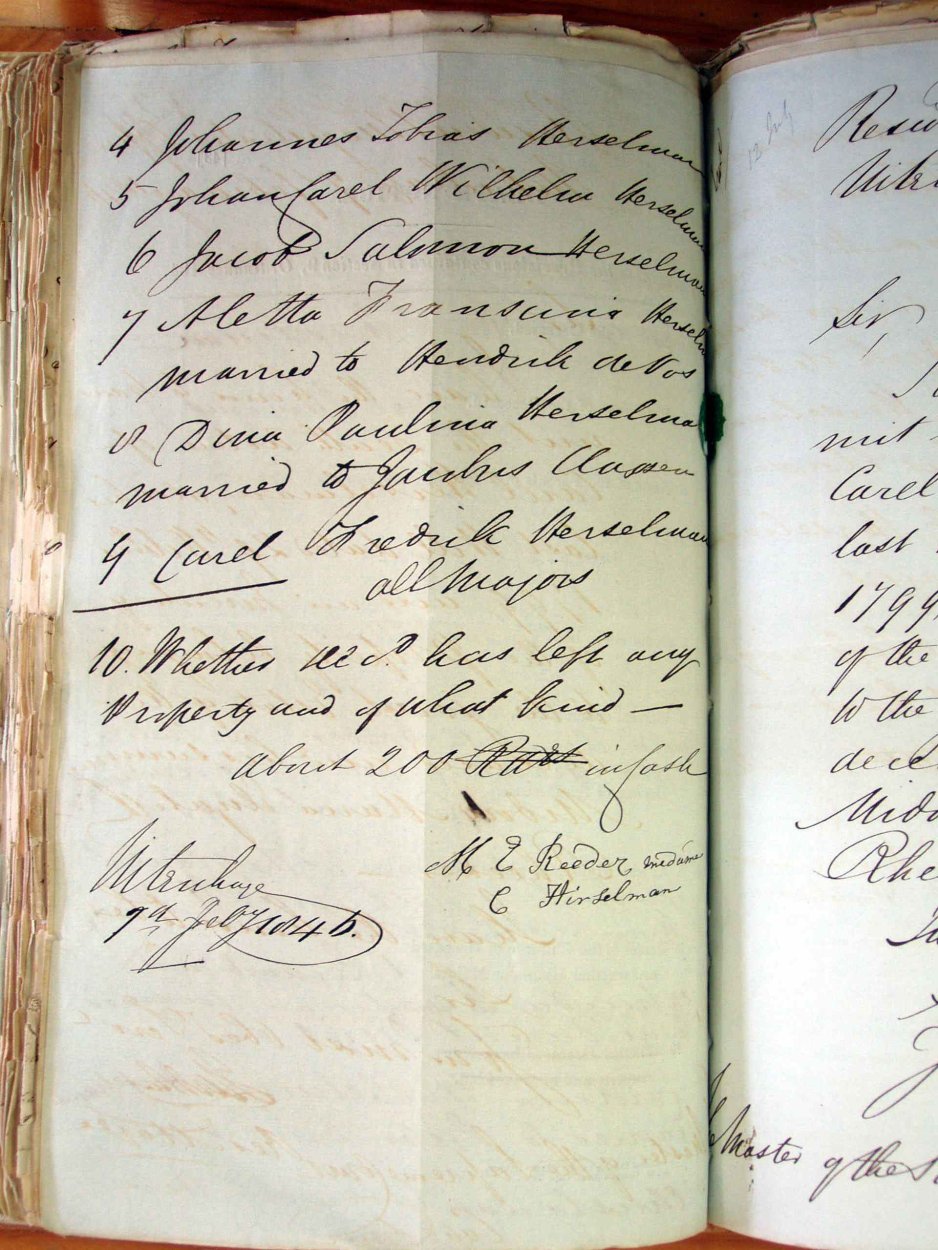 4 Johannes Tobias Herselman
5 Johan Carel Wilhelm Herselman
6 Jacob Salomon Herselman
7 Aletta Fransina Herselm
married to Hendrik de Vos
8 Dina Paulina Herselma
married to Jacobus Classen
9 Carel Fredrik Herselman
all Majors
10. Whether decd. has left any
Property and of what kind —
about 200 Rds in Cash
M E Reeder
C Hirselman
Uitenhage
9th Feby 1846.
12 July
Resid
Sir
mit
Carel
last
1799
of the
to the
Rhe
Master of the S